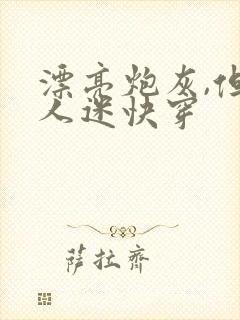 漂亮炮灰,但
人迷快穿
萨拉齐